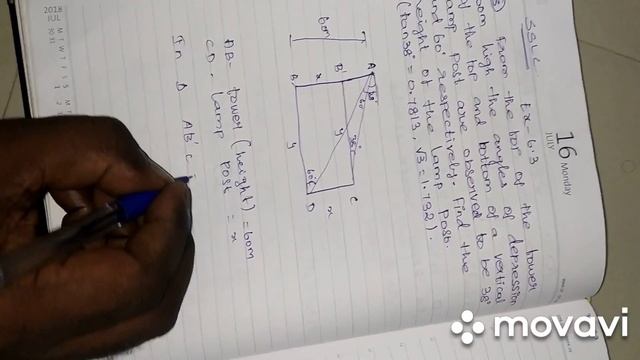 16 Monday
JULY
SSLC
Ex-6.3
3) From the top of the tower
60m high the angles of depression
of the top and bottom of a vertical
lamp post are observed to be 38°
and 60° respectively. Find the
height of the lamp post.
(tan38° = 0.7813, √3 = 1.732).
60m
A
38°
60°
B'
y
38°
C
x
x
B
y
60°
D
AB - tower (height) = 60m
CD - lamp post = x
In Δ AB'C
2018
JUL
movavi